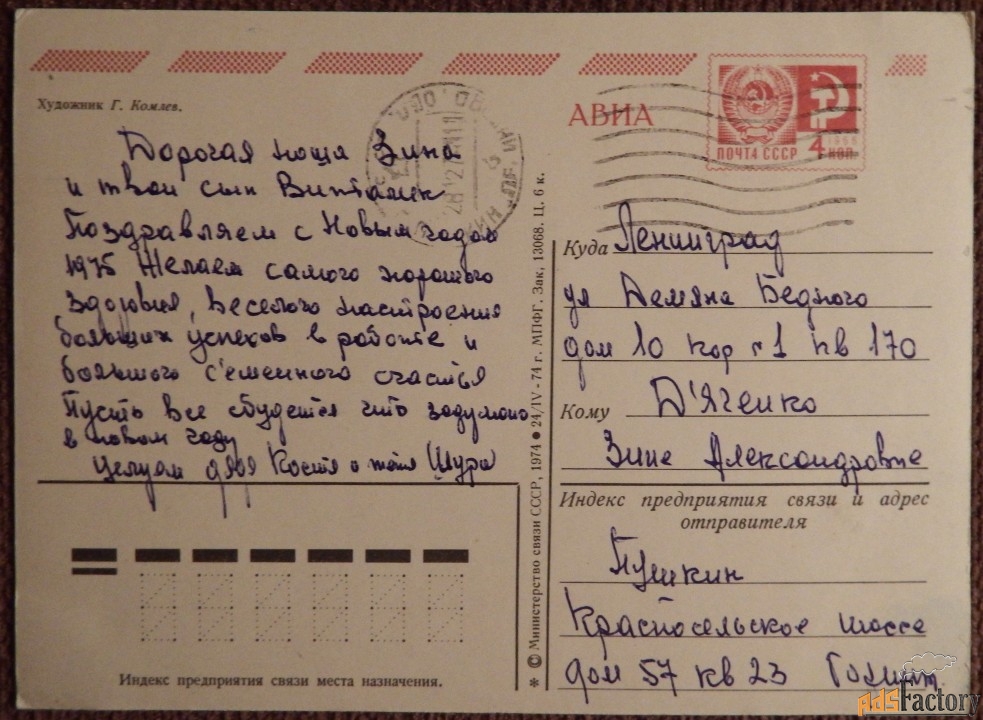 Художник Г. Комлев.
Дорогая наша Зина
и твой сын Виталик
Поздравляем с Новым годом
1975 Желаем самого хорошего
здоровия, веселого настроения
больших успехов в работе и
большого с'емейного счастья
Пусть все сбудется что задумано
в новом году
Целуем дядя Костя и тетя Шура
Индекс предприятия связи места назначения.
* © Министерство связи СССР, 1974 ● 24/IV - 74 г. МПФГ. Зак. 13068. Ц. 6 к.
АВИА
ПОЧТА СССР
4 КОП.
1966
Куда Ленинград
ул Демяна Бедного
дом 10 кор г1 кв 170
Кому Д'яченко
Зине Александровне
Индекс предприятия связи и адрес
отправителя
Пушкин
Красносельское шоссе
дом 57 кв 23
AdsFactory